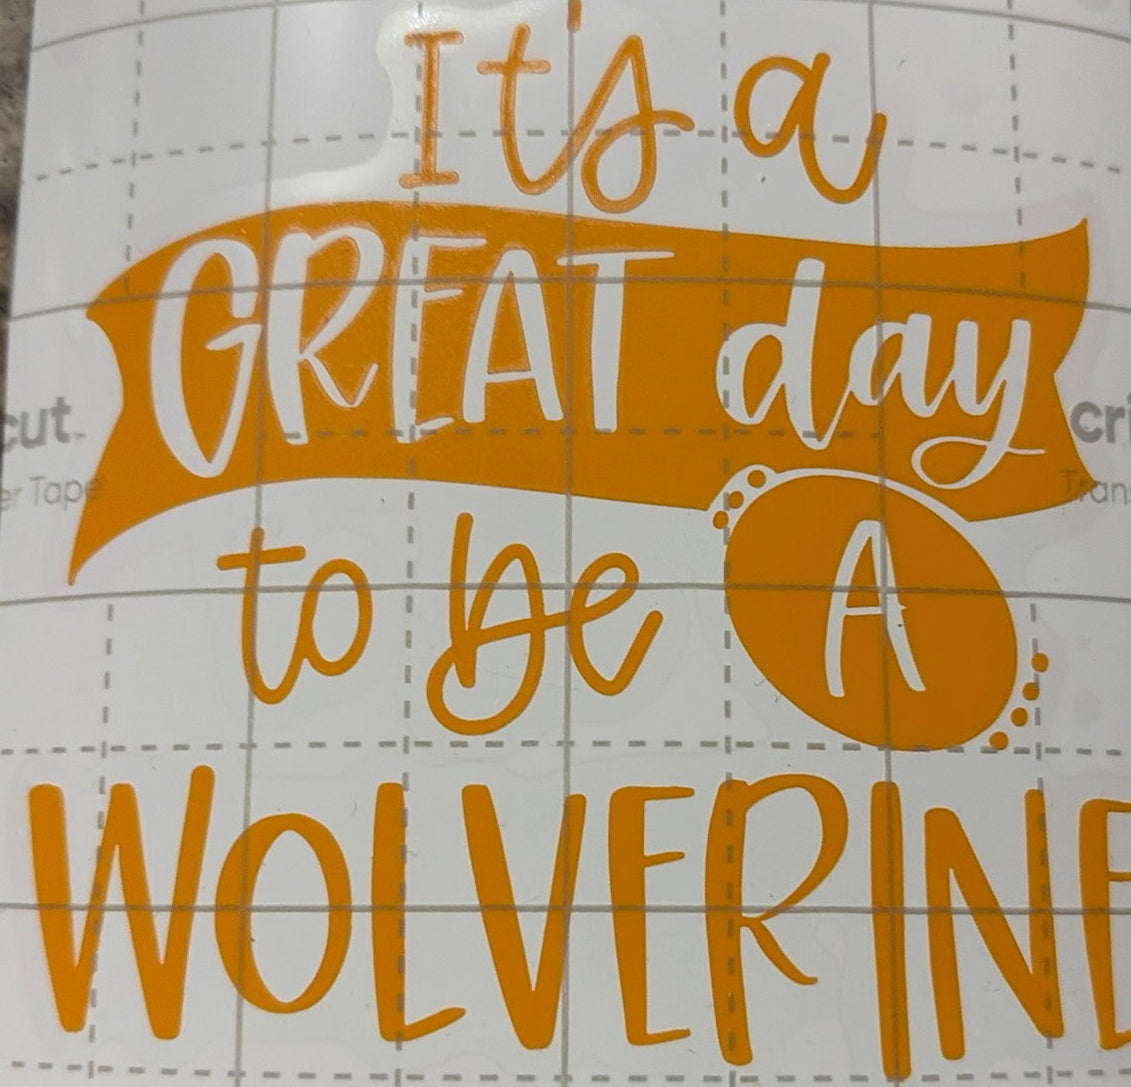 It's a
GREAT day
to be A
WOLVERINE
cut
er Tape
cri
Trans